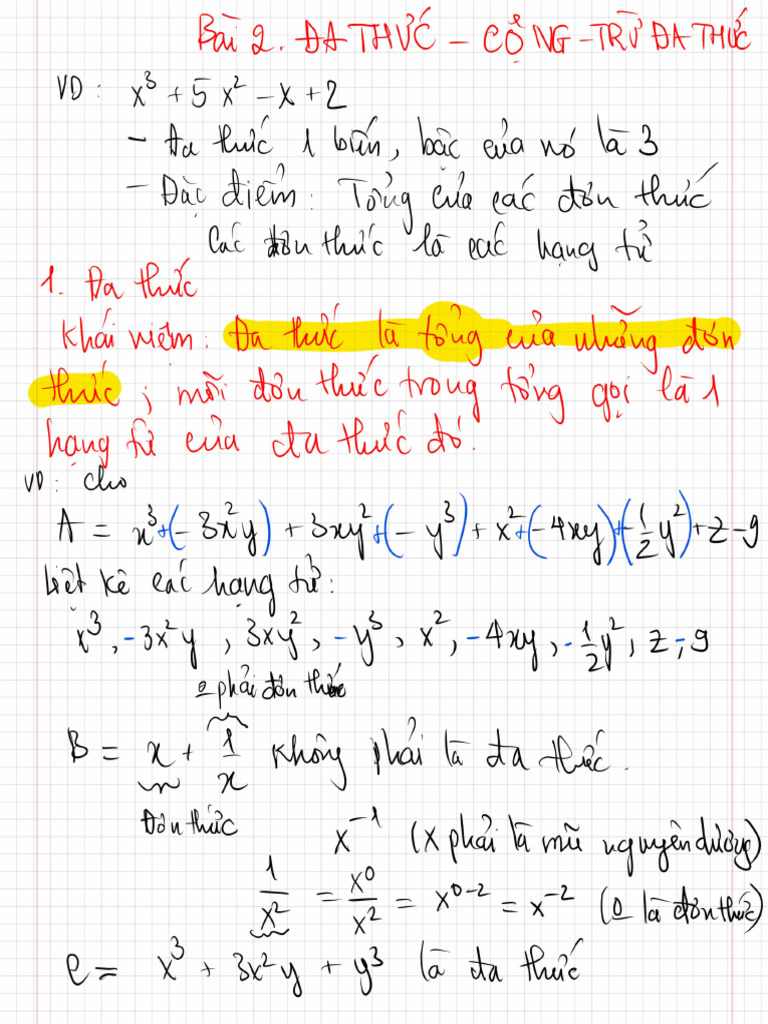 Bài 2. ĐA THỨC – CỘNG – TRỪ ĐA THỨC
VD: x³ + 5x² - x + 2
- Đa thức 1 biến, bậc của nó là 3
- Đặc điểm: Tổng của các đơn thức
Các đơn thức là các hạng tử
1. Đa thức
Khái niệm: Đa thức là tổng của những đơn
thức; mỗi đơn thức trong tổng gọi là 1
hạng tử của đa thức đó.
VD: cho
A = x³ + (-3x²y) + 3xy² + (-y³) + x² + (-4xy) + (-1/2 y²) + z - 9
Liệt kê các hạng tử:
x³, -3x²y, 3xy², -y³, x², -4xy, -1/2 y², z, -9
o phải đơn thức
B = x + 1/x Không phải là đa thức.
Đơn thức
x⁻¹ (x phải là mũ nguyên dương)
1/x² = x⁰/x² = x⁰⁻² = x⁻² (o là đơn thức)
C = x³ + 3x²y + y³ là đa thức